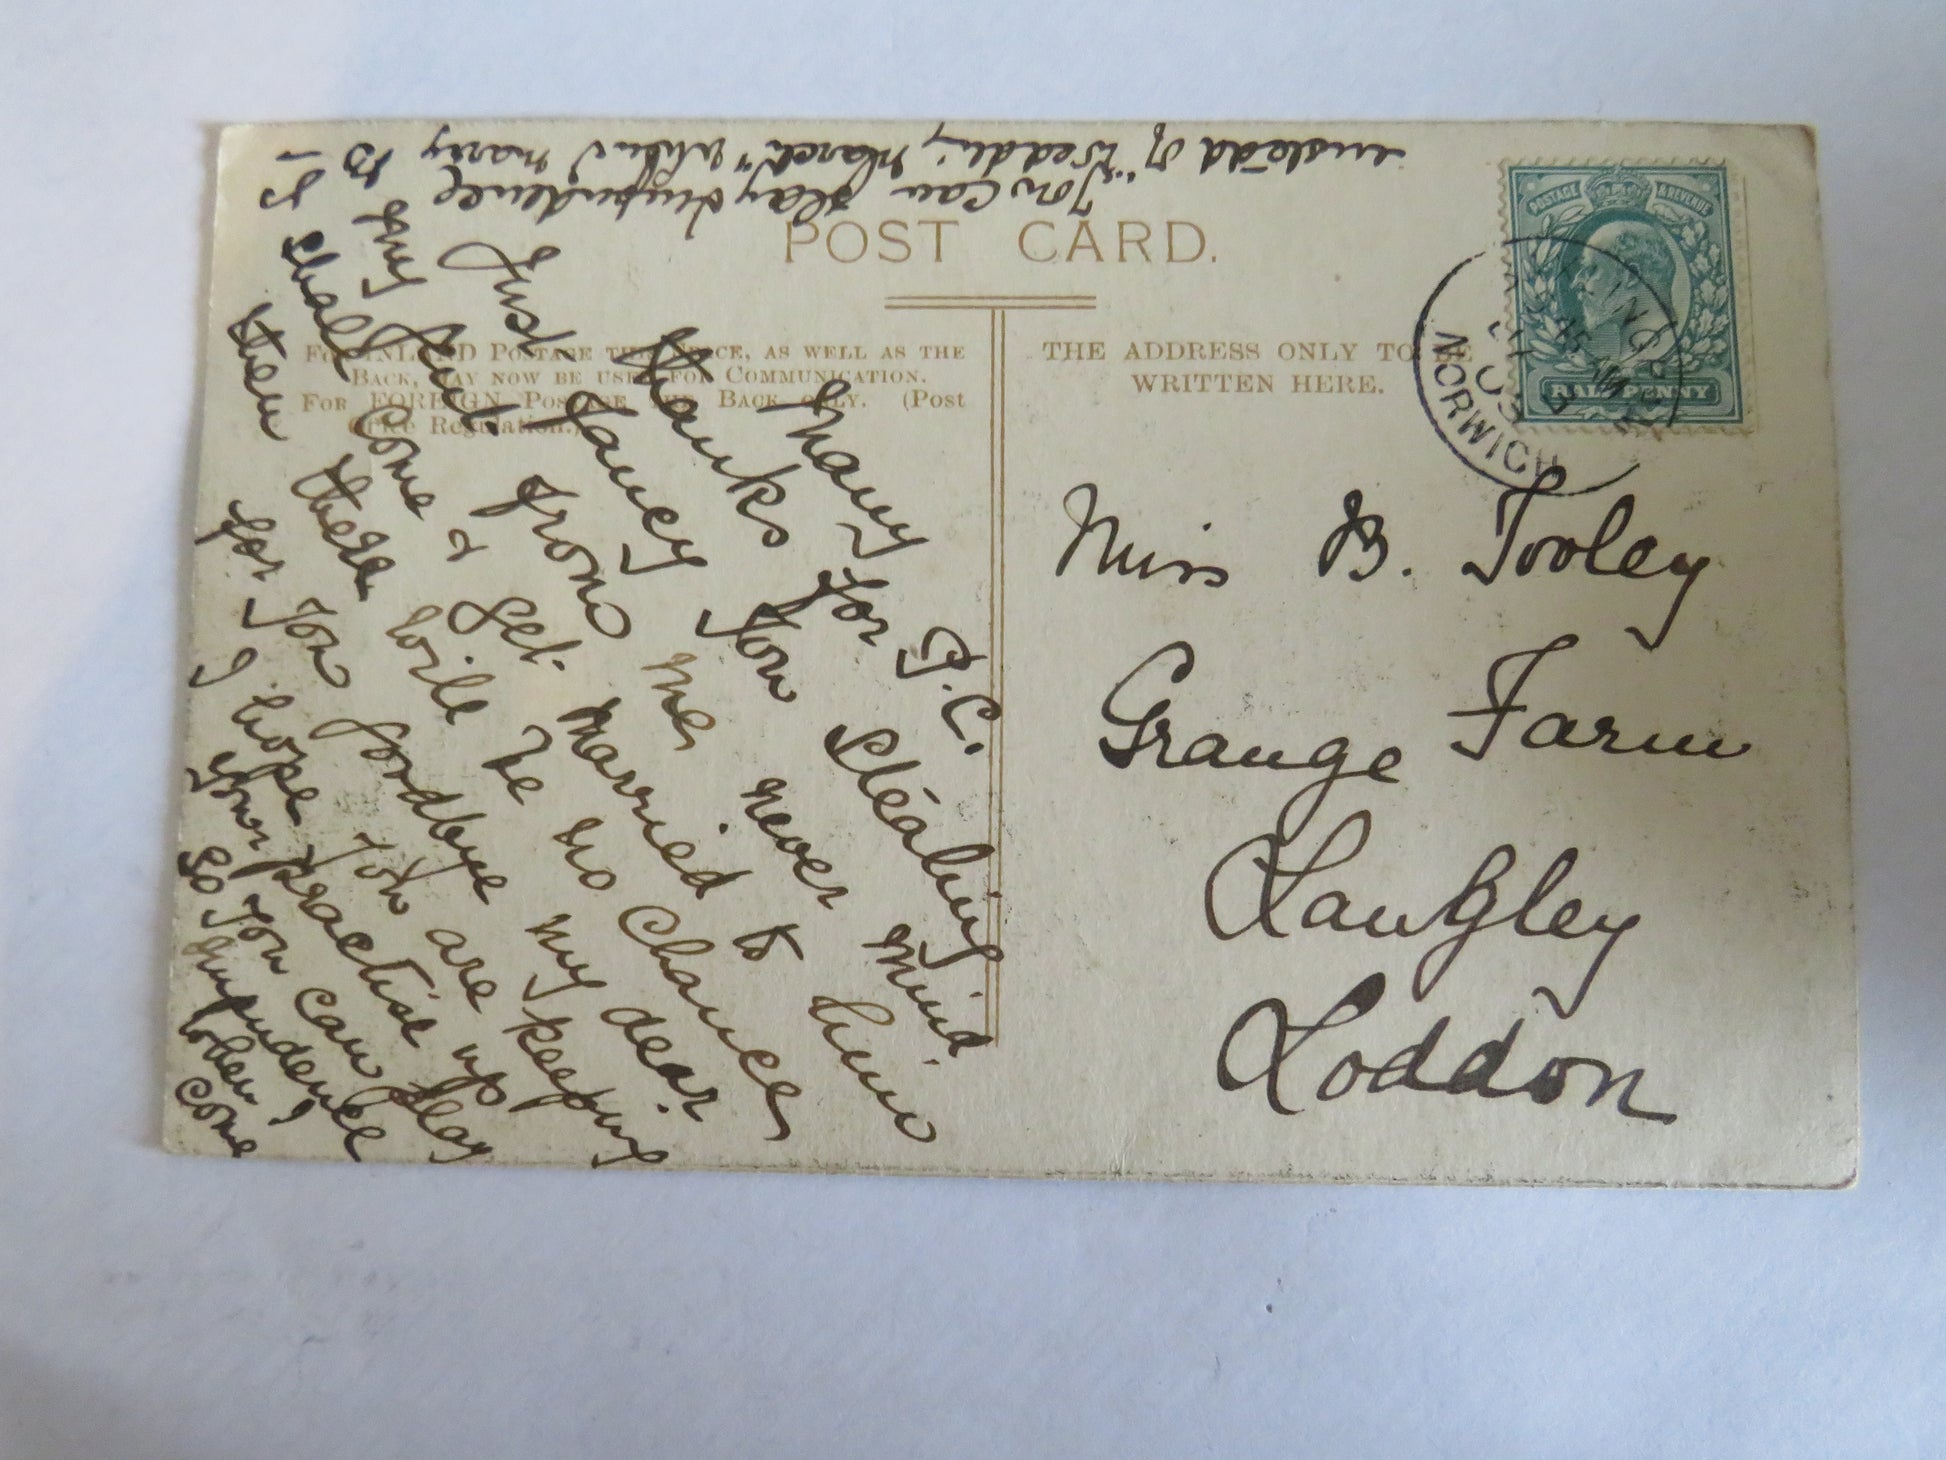 POST CARD.
FOR INLAND POSTAGE THIS SPACE, AS WELL AS THE
BACK, MAY NOW BE USED FOR COMMUNICATION.
FOR FOREIGN POSTAGE THE BACK ONLY. (Post
Office Regulation.)
THE ADDRESS ONLY TO BE
WRITTEN HERE.
POSTAGE & REVENUE
HALFPENNY
NORWICH
Miss B. Tooley
Grange Farm
Langley
Loddon
Many
Thanks for P.C.
Just fancy you stealing
my from me never mind
I shall come & get married to him
then there will be no chance
for you goodbye my dear
I hope you are keeping
your practise up
so you can play
Impudence
when I
come
You can play Impudence
instead of "Wedding March" when I marry B –